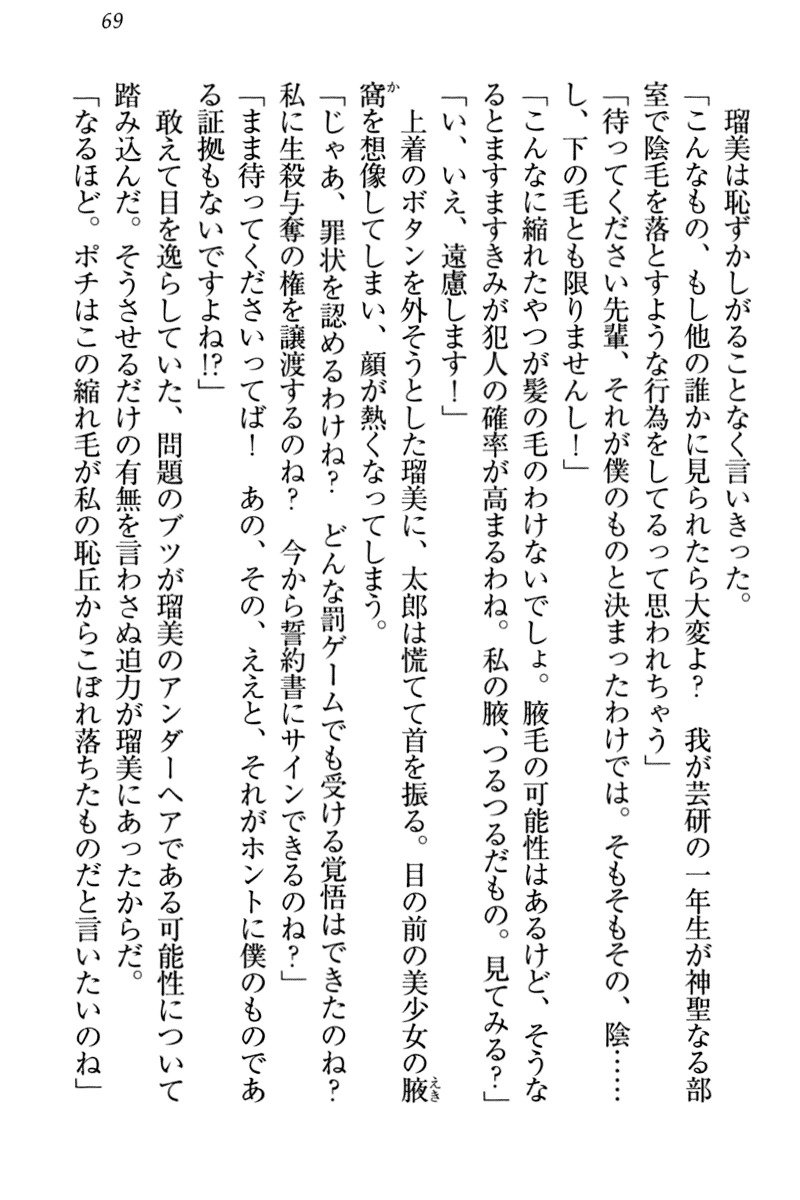 69
瑠美は恥ずかしがることなく言いきった。
「こんなもの、もし他の誰かに見られたら大変よ？　我が芸研の一年生が神聖なる部
室で陰毛を落とすような行為をしてるって思われちゃう」
「待ってください先輩、それが僕のものと決まったわけでは。そもそもその、陰……
し、下の毛とも限りませんし！」
「こんなに縮れたやつが髪の毛のわけないでしょ。腋毛の可能性はあるけど、そうな
るとますますきみが犯人の確率が高まるわね。私の腋、つるつるだもの。見てみる？」
「い、いえ、遠慮します！」
上着のボタンを外そうとした瑠美に、太郎は慌てて首を振る。目の前の美少女の腋えき
窩かを想像してしまい、顔が熱くなってしまう。
「じゃあ、罪状を認めるわけね？　どんな罰ゲームでも受ける覚悟はできたのね？
私に生殺与奪の権を譲渡するのね？　今から誓約書にサインできるのね？」
「まま待ってくださいってば！　あの、その、ええと、それがホントに僕のものであ
る証拠もないですよね!?」
敢えて目を逸らしていた、問題のブツが瑠美のアンダーヘアである可能性について
踏み込んだ。そうさせるだけの有無を言わさぬ迫力が瑠美にあったからだ。
「なるほど。ポチはこの縮れ毛が私の恥丘からこぼれ落ちたものだと言いたいのね」